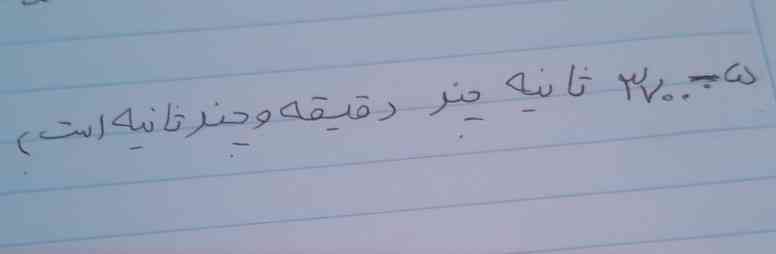 ۵- ۳۷۰۰ ثانیه چند دقیقه و چند ثانیه است؟